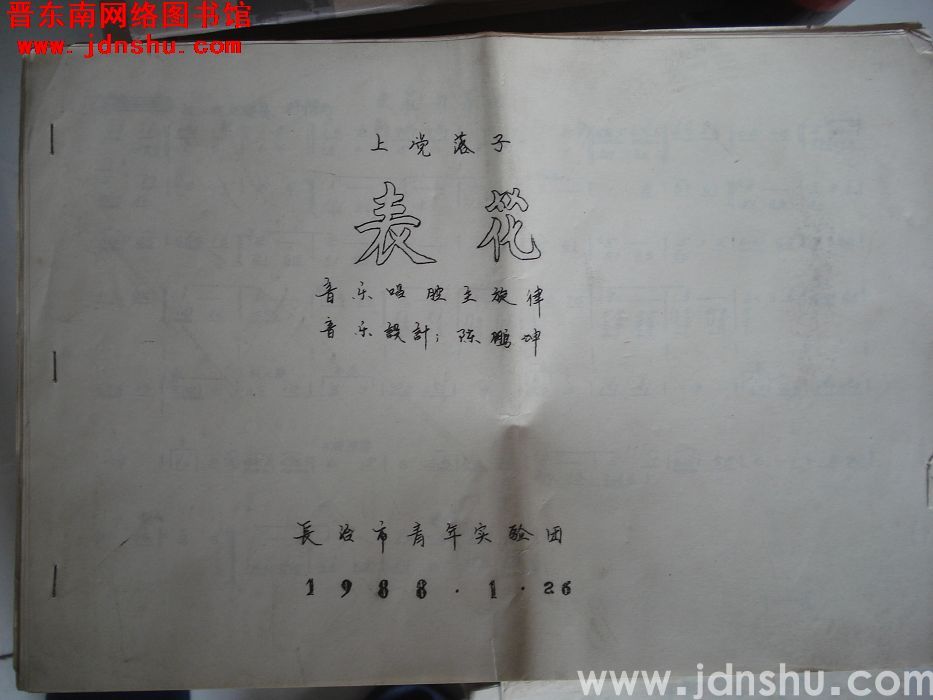 晋东南网络图书馆
www.jdnshu.com
上党落子
表花
音乐唱腔主旋律
音乐設計；陈鹏坤
長治市青年实验团
1988.1.26
www.jdnshu.com